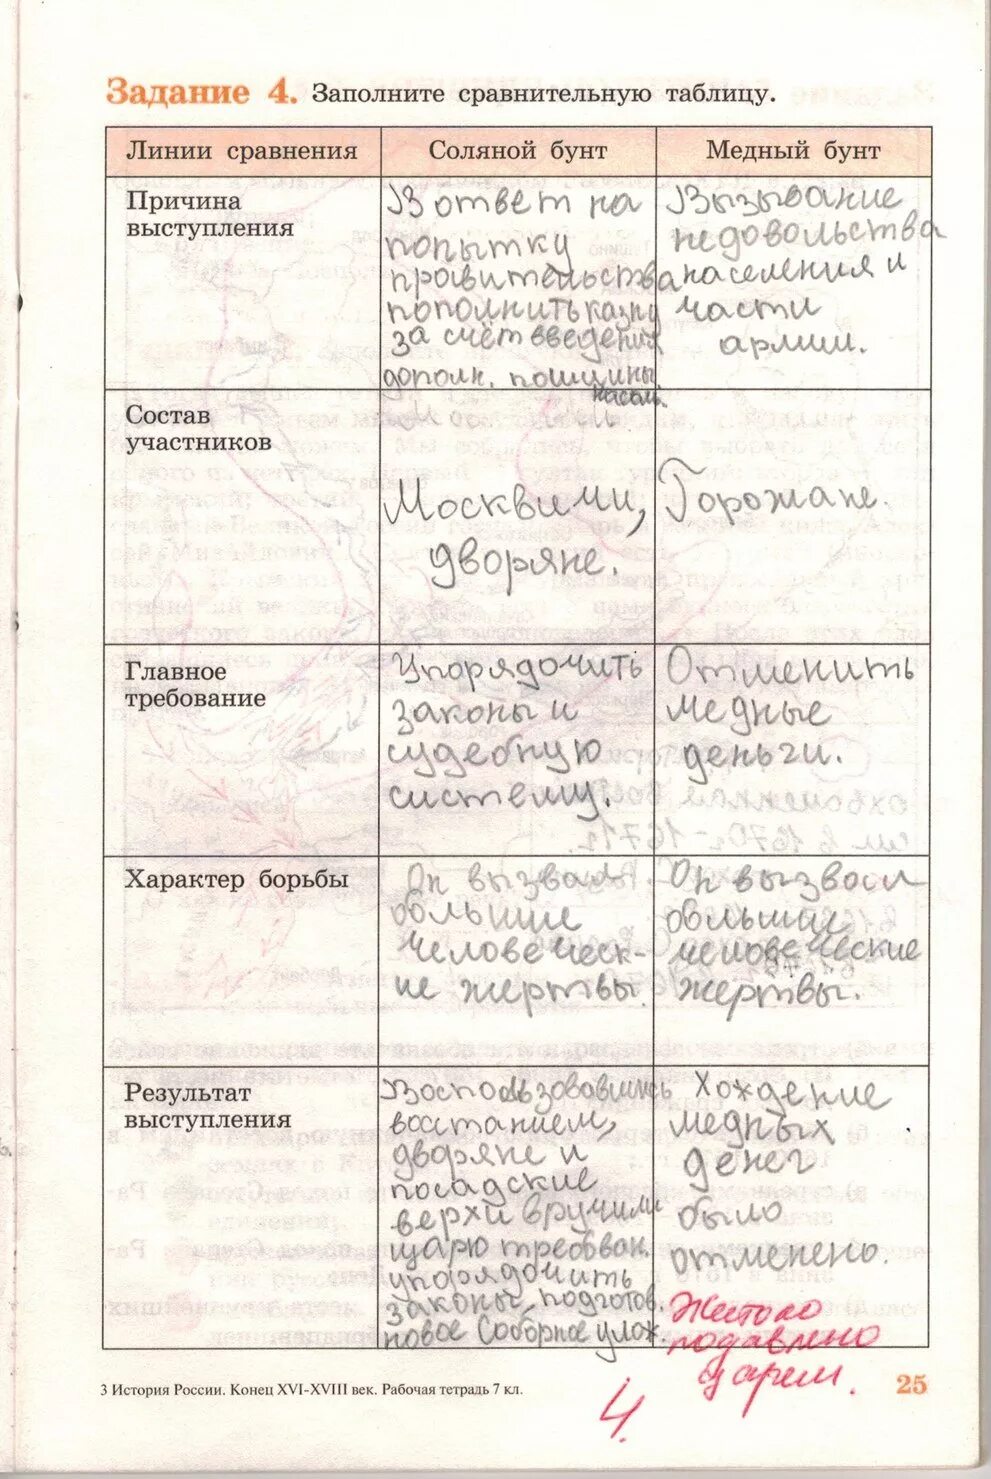 Задание 4. Заполните сравнительную таблицу.
Линии сравнения
Соляной бунт
Медный бунт
Причина
выступления
В ответ на
попытку
правительства
пополнить казну
за счёт введения
дополн. пошлины
насел.
Вызывание
недовольства
населения и
части
армии.
Состав
участников
Москвичи,
дворяне.
Горожане.
Главное
требование
Упорядочить
законы и
судебную
систему.
Отменить
медные
деньги.
Характер борьбы
Он вызвал
большие
человеческ-
ие жертвы.
Он вызвал
большие
человеческие
жертвы.
Результат
выступления
Воспользовавшись
восстанием,
дворяне и
посадские
верхи вручили
царю требован.
упорядочить
законы, подготов.
новое Соборное улож.
Хождение
медных
денег
было
отменено.
Жестоко
подавлено
царем.
3 История России. Конец XVI-XVIII век. Рабочая тетрадь 7 кл.
25
4.